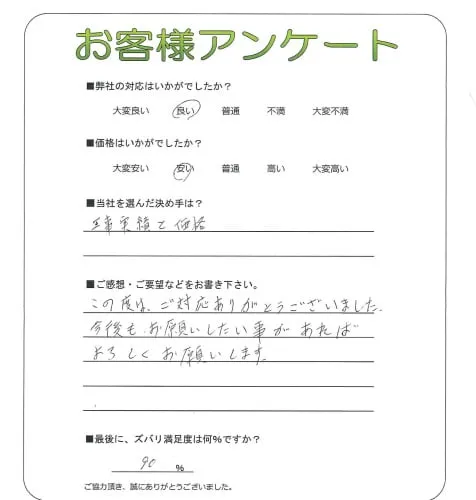 お客様アンケート
■弊社の対応はいかがでしたか？
大変良い 良い 普通 不満 大変不満
■価格はいかがでしたか？
大変安い 安い 普通 高い 大変高い
■当社を選んだ決め手は？
事実績と価格
■ご感想・ご要望などをお書き下さい。
この度は、ご対応ありがとうございました。
今後も お願いしたい事が あれば
よろしくお願いします。
■最後に、ズバリ満足度は何%ですか？
90 %
ご協力頂き、誠にありがとうございました。